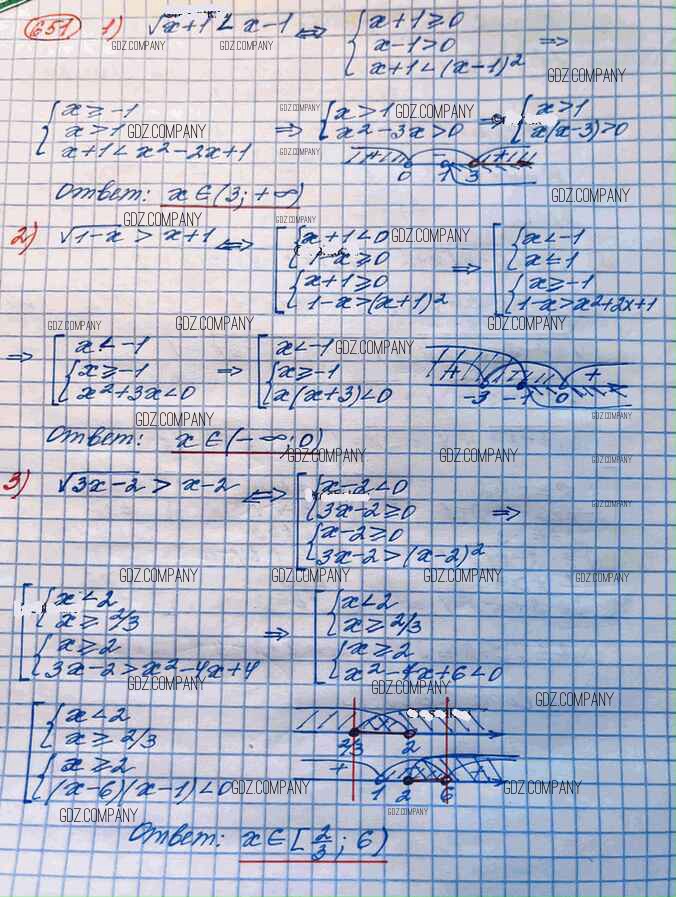 651 1) √x+1 < x-1 ⇔ { x+1≥0
x-1>0 ⇒
x+1<(x-1)²
GDZ.COMPANY GDZ.COMPANY GDZ.COMPANY
{ x≥-1
x>1
x+1<x²-2x+1
⇒ { x>1
x²-3x>0
⇒ { x>1
x(x-3)>0
GDZ.COMPANY GDZ.COMPANY GDZ.COMPANY GDZ.COMPANY
+ +
0 1 3
Ответ: x∈(3;+∞)
GDZ.COMPANY GDZ.COMPANY GDZ.COMPANY
2) √1-x > x+1 ⇔ [ { x+1<0
1-x≥0
{ x+1≥0
1-x>(x+1)²
GDZ.COMPANY
⇒ [ { x<-1
x≤1
{ x≥-1
1-x>x²+2x+1
GDZ.COMPANY GDZ.COMPANY GDZ.COMPANY
⇒ [ x<-1
{ x≥-1
x²+3x<0
⇒ [ x<-1
{ x≥-1
x(x+3)<0
GDZ.COMPANY
+ - +
-3 -1 0
GDZ.COMPANY GDZ.COMPANY
Ответ: x∈(-∞;0)
GDZ.COMPANY GDZ.COMPANY GDZ.COMPANY
3) √3x-2 > x-2 ⇔ [ { x-2<0
3x-2≥0 ⇒
{ x-2≥0
3x-2>(x-2)²
GDZ.COMPANY
GDZ.COMPANY GDZ.COMPANY GDZ.COMPANY GDZ.COMPANY
[ { x<2
x≥2/3
{ x≥2
3x-2>x²-4x+4
⇒ [ { x<2
x≥2/3
{ x≥2
x²-7x+6<0
GDZ.COMPANY GDZ.COMPANY GDZ.COMPANY
[ { x<2
x≥2/3
{ x≥2
(x-6)(x-1)<0
2/3 2
+ - +
1 2 6
GDZ.COMPANY GDZ.COMPANY
GDZ.COMPANY GDZ.COMPANY
Ответ: x∈[2/3; 6)